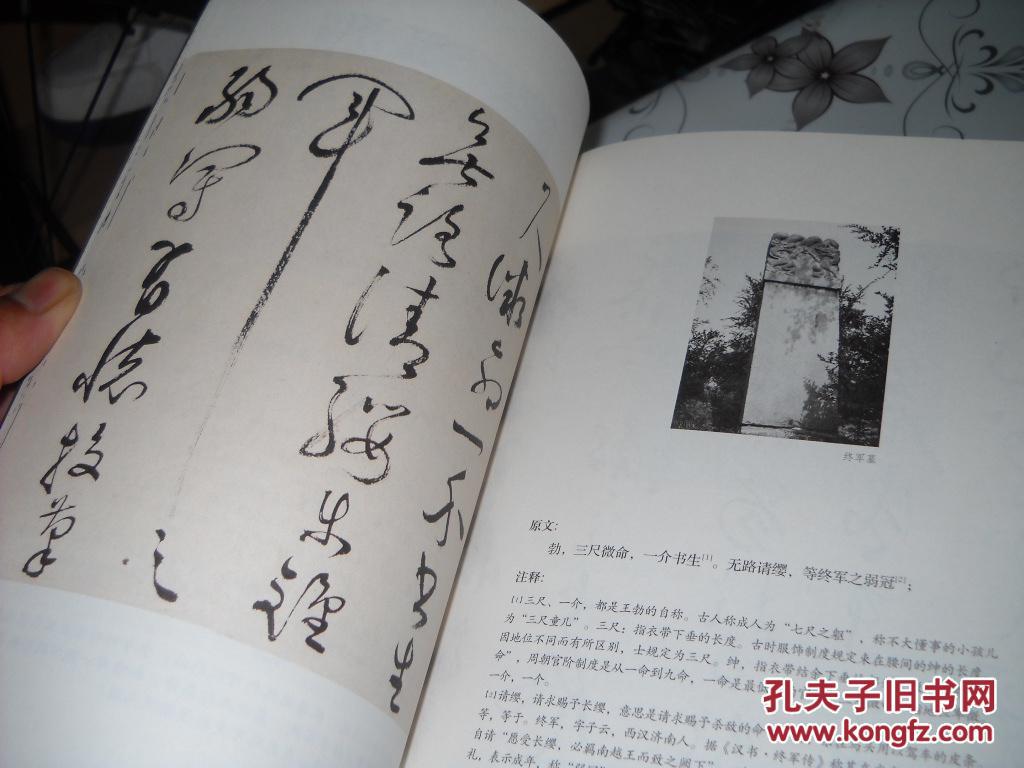 尺微命一介書生
無路請纓等終
軍之
弱冠有懷投筆
终军墓
原文:
勃，三尺微命，一介书生[1]。无路请缨，等终军之弱冠[2]；
注释:
[1]三尺、一介，都是王勃的自称。古人称成人为“七尺之躯”，称不大懂事的小孩儿
为“三尺童儿”。三尺：指衣带下垂的长度。古时服饰制度规定束在腰间的绅的长度，
因地位不同而有所区别，士规定为三尺。绅，指衣带结余下垂
命”，周朝官阶制度是从一命到九命，一命是最低
一介，一个。
[2]请缨，请求赐予长缨，意思是请求赐予杀敌的命 用以驾车的皮条。
等，等于。终军，字子云，西汉济南人。据《汉书·终军传》称其
自请“愿受长缨，必羁南越王而致之阙下”
礼，表示成年，称
孔夫子旧书网
www.kongfz.com